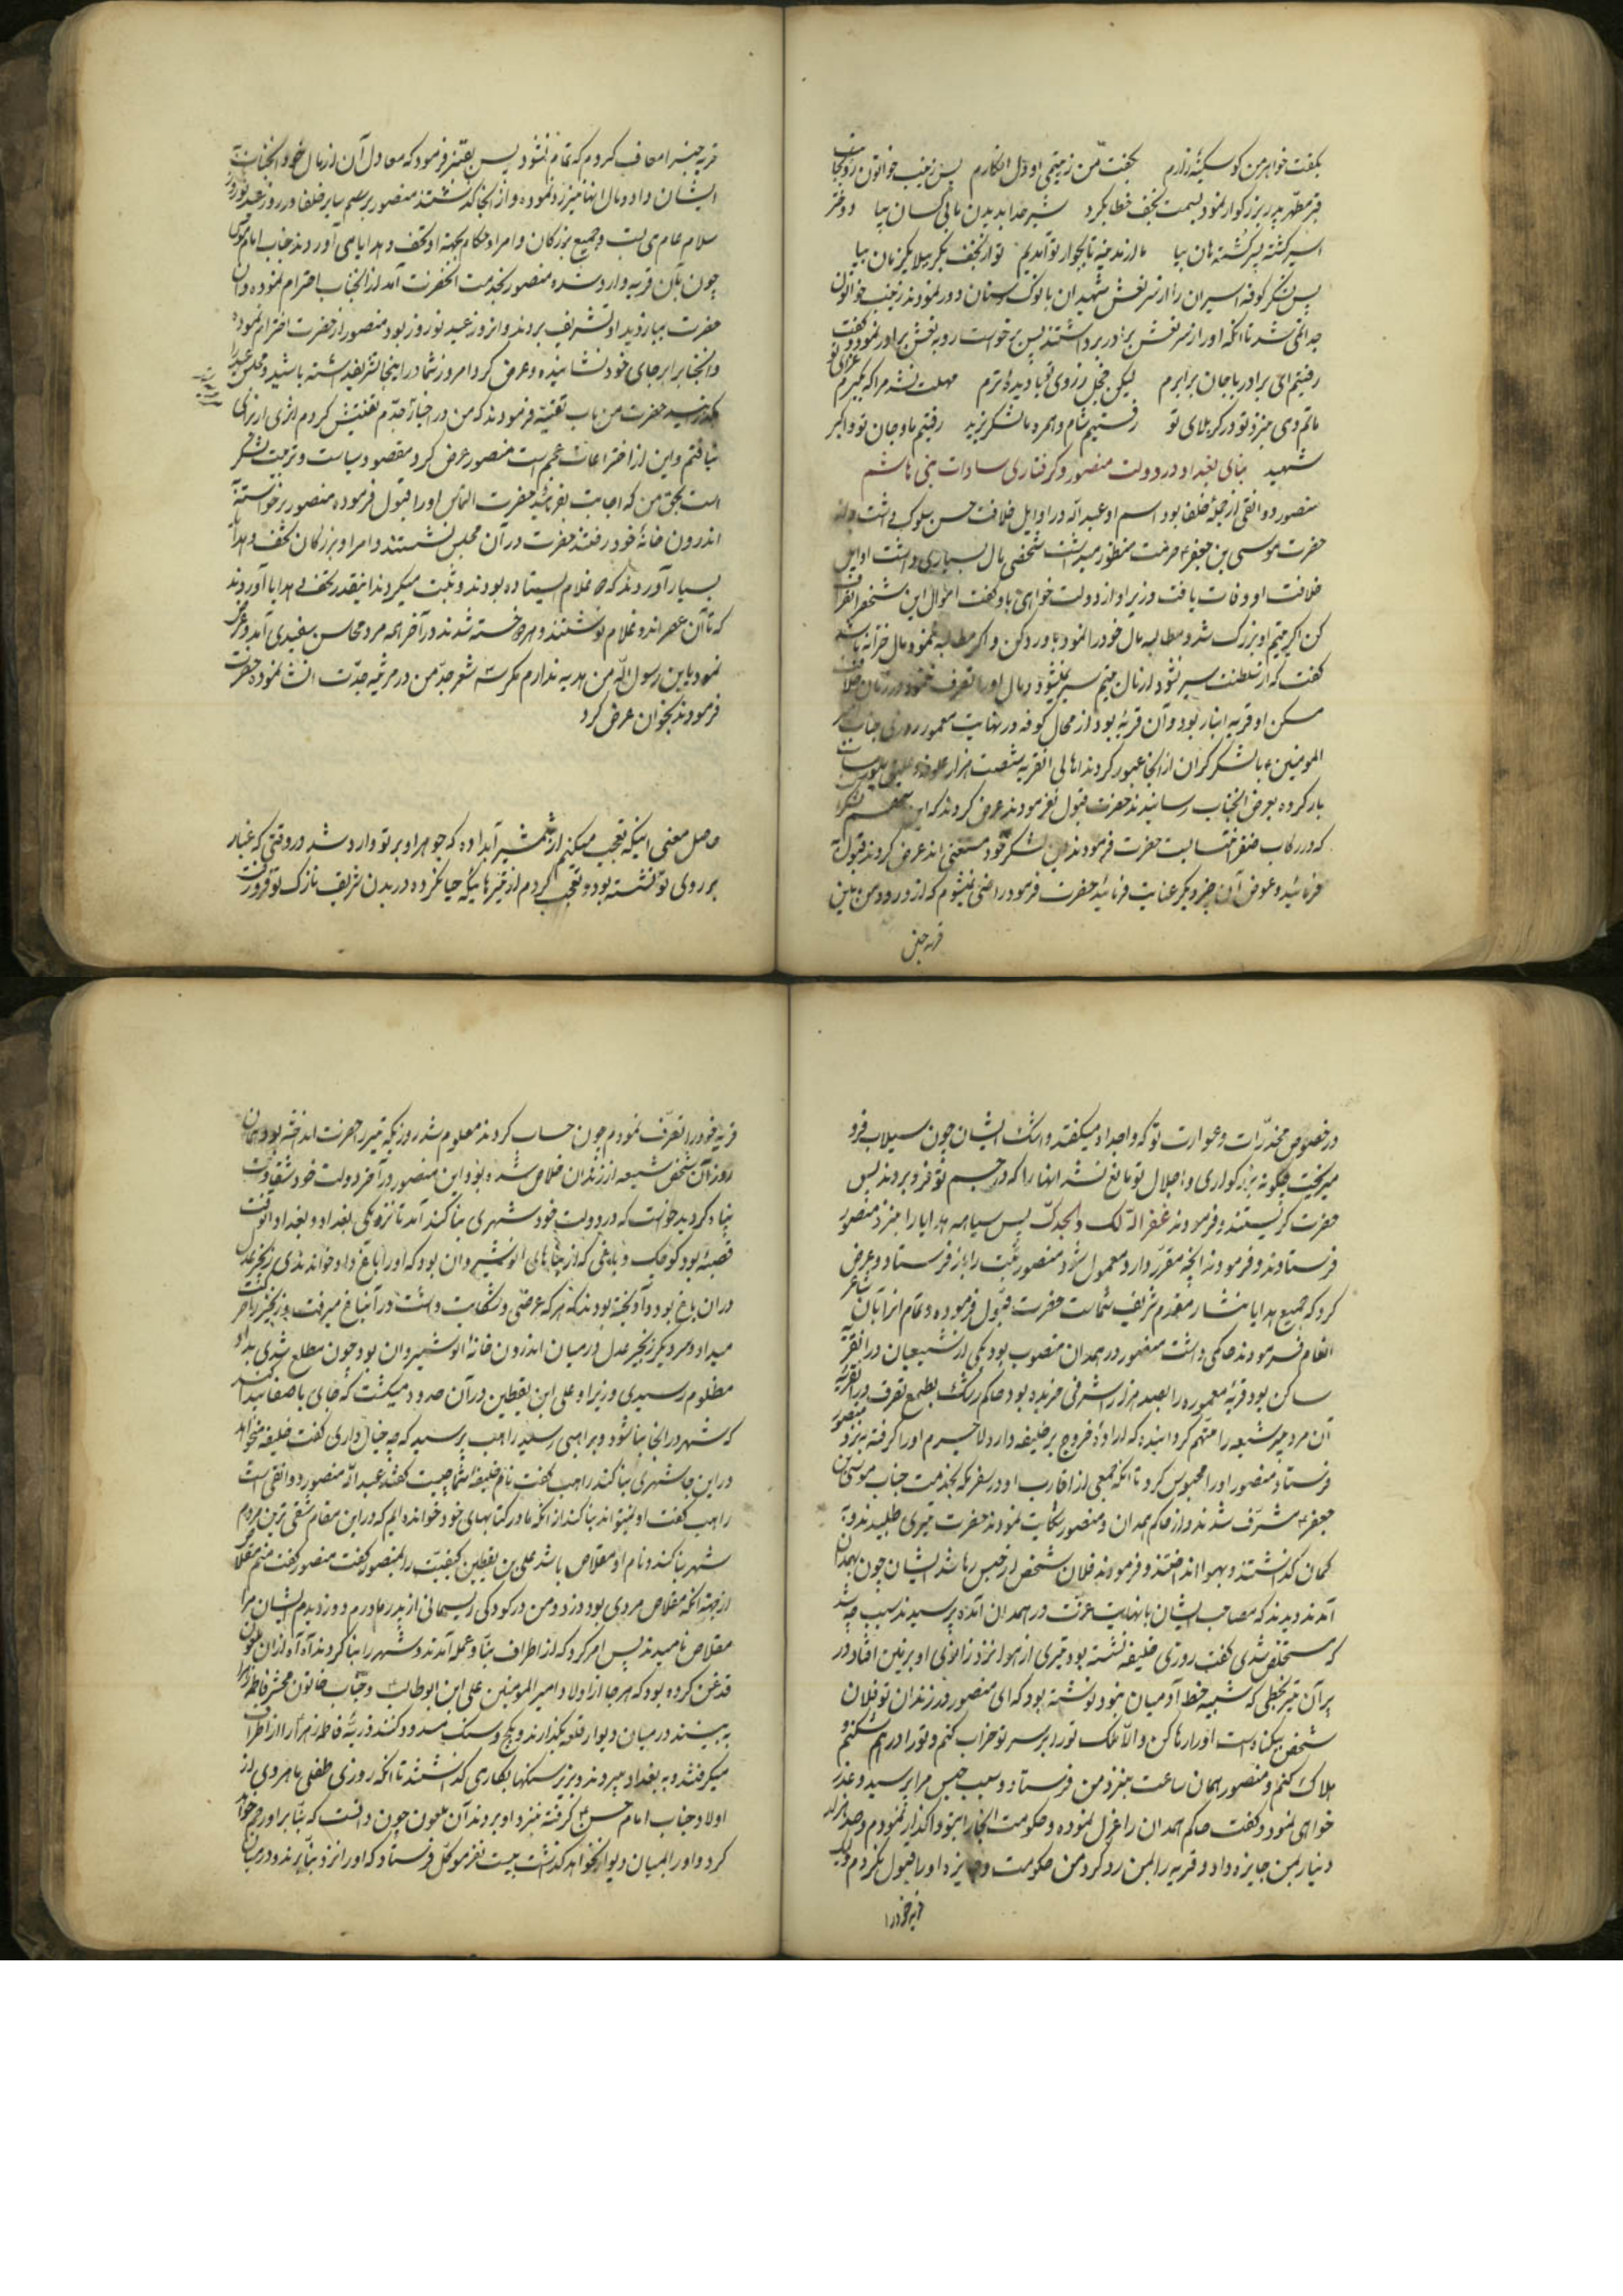 بگفت خواهر من کو سکینهٔ زارم بگفتمش من زیتیمی او دل افکارم پس زینب خواتون رو بجانب
قبر مطهر پدر بزرگوار نمود بسمت نجف خطاب کرد شیر خدا بدیدن ما بی کسان بیا دو دختر
اسیر کشته پسر کشته هان بیا ما از مدینه تا بجوار تو آمدیم تو از نجف بکربلا یکزمان بیا
پس لشکر کوفه اسیران را از سر نعش شهیدان با نوک سنان دور نمودند زینب خواتون
جدا نمی شد تا آنکه او را از سر نعش برادر برداشتند پس برخواست رو به نعش برادر نمود و گفت
رفتیم ای برادر با جان برابرم لیکن خجل ز روی تو با دیدهٔ ترم مهلت نشد مرا که بگیرم عزای تو
ماتم دمی نزد تو در کربلای تو رفتیم شام و همره ما لشکر یزید رفتیم ما و جان تو و اکبر
شهید بنای بغداد در دولت منصور و گرفتاری سادات بنی هاشم
منصور دوانقی از جمله خلفا بود اسم او عبد الله در اوایل خلافت حسن سلوک داشت و از
حضرت موسی بن جعفر حرمت منظور میداشت شخصی مال بسیاری داشت اوایل
خلافت او وفات یافت وزیر او از دولت خواهی باو گفت اموال این شخص را تصرف
کن اگر یتیم او بزرگ شد و مطالبه مال خود را نمود باو رد کن و اگر مطالبه ننمود مال خزانه باشد
گفت که از سلطنت سیر نشود از مال یتیم سیر نمیشود و مال او را تصرف ننمود در زمان خلافت
مسکن او قریه انبار بود و آن قریهٔ بود از محال کوفه در نهایت معمور روزی جناب امیر
المومنین با لشکر گران از آنجا عبور کردند اهالی آن قریه شصت هزار
بار کرده بعرض آنجناب رسانیدند حضرت قبول نفرمودند عرض کردند که این سهم لشکر
که در رکاب ظفر انتساب است حضرت فرمودند این لشکر خود مستغنی اند عرض کردند قبول
فرمائید و عوض آن چیز دیگر عنایت فرمائید حضرت فرمود راضی نمیشوم که از ورود من باین
قریه چیزی
قریه چیزی معاف کردم که تمام نشود پس بقنبر فرمود که معادل آن از مال خود آنجناب به
ایشان داد و مال آنها نیز رد نموده و از آنجا گذشتند منصور برسم سایر خلفا در روز عید نوروز
سلام عام می نشست و جمیع بزرگان و امرا و حکام بجهة او تحف و هدایا می آوردند جناب امام موسی
چون بآن قریه وارد شد منصور بخدمت آنحضرت آمد از آنجناب احترام نموده و آن
حضرت ببازدید او تشریف بردند و آنروز عید نوروز بود منصور از حضرت احترام نموده
و آنجناب را بر جای خود نشانیده و عرض کرد امروز شما در اینجا تشریف داشته باشید و مجلس عید را
بگذرانید حضرت من باب تقیه فرمودند که من در اخبار جدم تفتیش کردم اثری از برای
نیافتم و این از اختراعات عجم است منصور عرض کرد مقصود سیاست و تربیت لشکر
است بحق من که اجابت بفرمائید حضرت التماس او را قبول فرموده منصور برخواسته
اندرون خانهٔ خود رفتند حضرت در آن مجلس نشستند و امرا و بزرگان تحف و هدایا
بسیار آوردند که غلام ایستاده بودند و ثبت میکردند اینقدر تحف هدایا آوردند
که تا آن عصر اندو غلام نوشتند و هر دو خسته شدند در آخر همه مرد محاسن سفیدی آمد و عرض
نمود یا بن رسول الله من هدیه ندارم مگر سه شعر جد من در مرثیه جدت انشا نموده حضرت
فرمودند بخوان عرض کرد
حاصل معنی اینکه تعجب میکنم از شمشیر آبداده که جوهر او بر تو وارد شد در وقتی که غبار
بر روی تو نشسته بود و تعجب کردم از تیرهائیکه حیا نکرده در بدن شریف نازک تو فرو رفت
در خصوص مخدرات و عوارت تو که واجداه میگفتند و اشک ایشان چون سیلاب فرو
میریخت چگونه بزرگواری و اجلال تو مانع نشد آنها را که در جسم تو فرو بردند پس
حضرت گریستند و فرمودند غفر الله لک ولجدک پس سیاهه هدایا را بنزد منصور
فرستادند و فرمودند آنچه مقرر دارد معمول شود منصور ثبت را باز فرستاد و عرض
کرد که جمیع هدایا نثار مقدم شریف شماست حضرت قبول فرموده و تمام آنرا بآن شاعر
انعام فرمودند حاکمی داشت منصور در همدان منصوب بود یکی از شیعیان در آنقریه
ساکن بود قریهٔ معموره را بصد هزار اشرفی خریده بود حاکم رشک بطمع تصرف در آنقریه
آن مرد پیر شیعه را متهم گردانیده که اراده خروج بر خلیفه دارد لاجرم او را گرفته بنزد منصور
فرستاد منصور او را محبوس کرد تا آنکه جمعی از اقارب او در سفر مکه بخدمت جناب موسی بن
جعفر مشرف شدند و از حاکم همدان و منصور شکایت نمودند حضرت تیری طلبیدند و به
کمان گذاشتند و بهوا انداختند و فرمودند فلان شخص از حبس رها شد ایشان چون بهمدان
آمدند دیدند که مصاحب ایشان با نهایت عزت در همدان آمده پرسیدند سبب چه شد
که مستخلص شدی گفت روزی خلیفه نشسته بود تیری از هوا نزد زانوی او بزمین افتاد و در
پر آن تیر بخطی که شبیه خط آدمیان نبود نوشته بود که ای منصور در زندان تو فلان
شخص بیگناه است او را رها کن و الا ملک تو را بر سر تو خراب کنم و تو را در هم شکنم و
هلاک کنم و منصور همان ساعت بنزد من فرستاد و سبب حبس مرا پرسید و عذر
خواهی نمود و گفت حاکم همدان را عزل نموده و حکومت آنجا را بتو واگذار نمودم و صد هزار
دینار بمن جایزه داد و قریه را بمن رد کرد من حکومت و جایزه او را قبول نکردم و لیک
قریه خود را
قریه خود را تصرف نمودم چون حساب کردند معلوم شد روزیکه تیر را حضرت انداخته بود همان
روز آن شخص شیعه از زندان خلاص شده بود و این منصور در آخر دولت خود شقاوت
بنیاد کرد یخواست که در دولت خود شهری بنا کند آمد تا نزدیکی بغداد و بغداد آنوقت
قصبهٔ بود کوچک و باغی که از بناهای انوشیروان بود که او را باغ داد خواندندی زنجیر عدل
در آن باغ بود و آویخته بودند که هر که عرضی و شکایت داشت در آن باغ میرفت و زنجیر را حرکت
میداد و سر دیگر زنجیر عدل در میان اندرون خانه انوشیروان بود چون مطلع شدی بداد
مظلوم رسیدی وزیر او علی ابن یقطین در آن حدود میگشت که جای با صفا پیدا کند
که شهر در آنجا بنا شود و براهبی رسید راهب پرسید که چه خیال داری گفت خلیفه میخواهد
در این جا شهری بنا کند راهب گفت نام خلیفه شما چیست گفتند عبد الله منصور دوانقی است
راهب گفت او نمیتواند بنا کند از آنکه ما در کتابهای خود خوانده ایم که در این مقام شقی ترین مردم
شهر بنا کند و نام او مقلاص باشد علی بن یقطین کیفیت را بمنصور گفت منصور گفت منم مقلاص
از جهة آنکه مقلاص مردی بود دزد و من در کودکی ریسمانی از پدر و مادرم دزدیدم ایشان مرا
مقلاص نامیدند پس امر کرد که از اطراف بنا و عمله آمدند و شهر را بنا کردند آه آه از آن ملعون
قدغن کرده بود که هر جا از اولاد امیر المومنین علی ابن ابوطالب و جناب خاتون محشر فاطمه زهرا
به بینند در میان دیوار قلعه بگذارند و بگچ و سنگ مسدود کنند ذریه فاطمه زهرا را از اطراف
میگرفتند و به بغداد میبردند و بزیر سنگها بکار می گذاشتند تا آنکه روزی طفلی ماهروی از
اولاد جناب امام حسن گرفته بنزد او بردند آن ملعون چون دانست که بنا بر او رحم خواهد
کرد و او را بمیان دیوار نخواهد گذاشت بیست نفر موکل فرستاد که او را نزد بنا برند و در میان